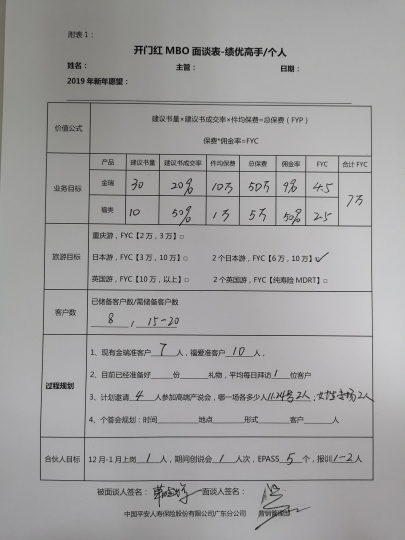 附表1：
开门红 MBO 面谈表-绩优高手/个人
姓名： 主管： 日期：
2019 年新年愿望：
价值公式
建议书量×建议书成交率×件均保费=总保费（FYP）
保费*佣金率=FYC
业务目标
产品 建议书量 建议书成交率 件均保费 总保费 佣金率 FYC 合计 FYC
金瑞 30 20% 10万 50万 9% 4.5 7万
福类 10 50% 1万 5万 50% 2.5
旅游目标
重庆游，FYC【2万，3万】□
日本游，FYC【3万，10万】□ 2个日本游，FYC【6万，10万】✓
英国游，FYC【10万，以上】□ 2个英国游，FYC【纯寿险 MDRT】□
客户数
已储备客户数/需储备客户数
8 , 15-20
过程规划
1、现有金瑞准客户 7 人，福爱准客户 10 人，
2、目前已经准备好 份 礼物，平均每日拜访 1 位客户
3、计划邀请 4 人参加高端产说会，哪一场各多少人 11.24号2人，
4、个答会规划：时间 地点 形式 客户 人
合伙人目标
12月-1月上岗 1 人，期间创说会 1 人次，EPASS 5 个，报训 1-2人
被面谈人签名： 面谈人签名：
中国平安人寿保险股份有限公司广东分公司 营销管理部